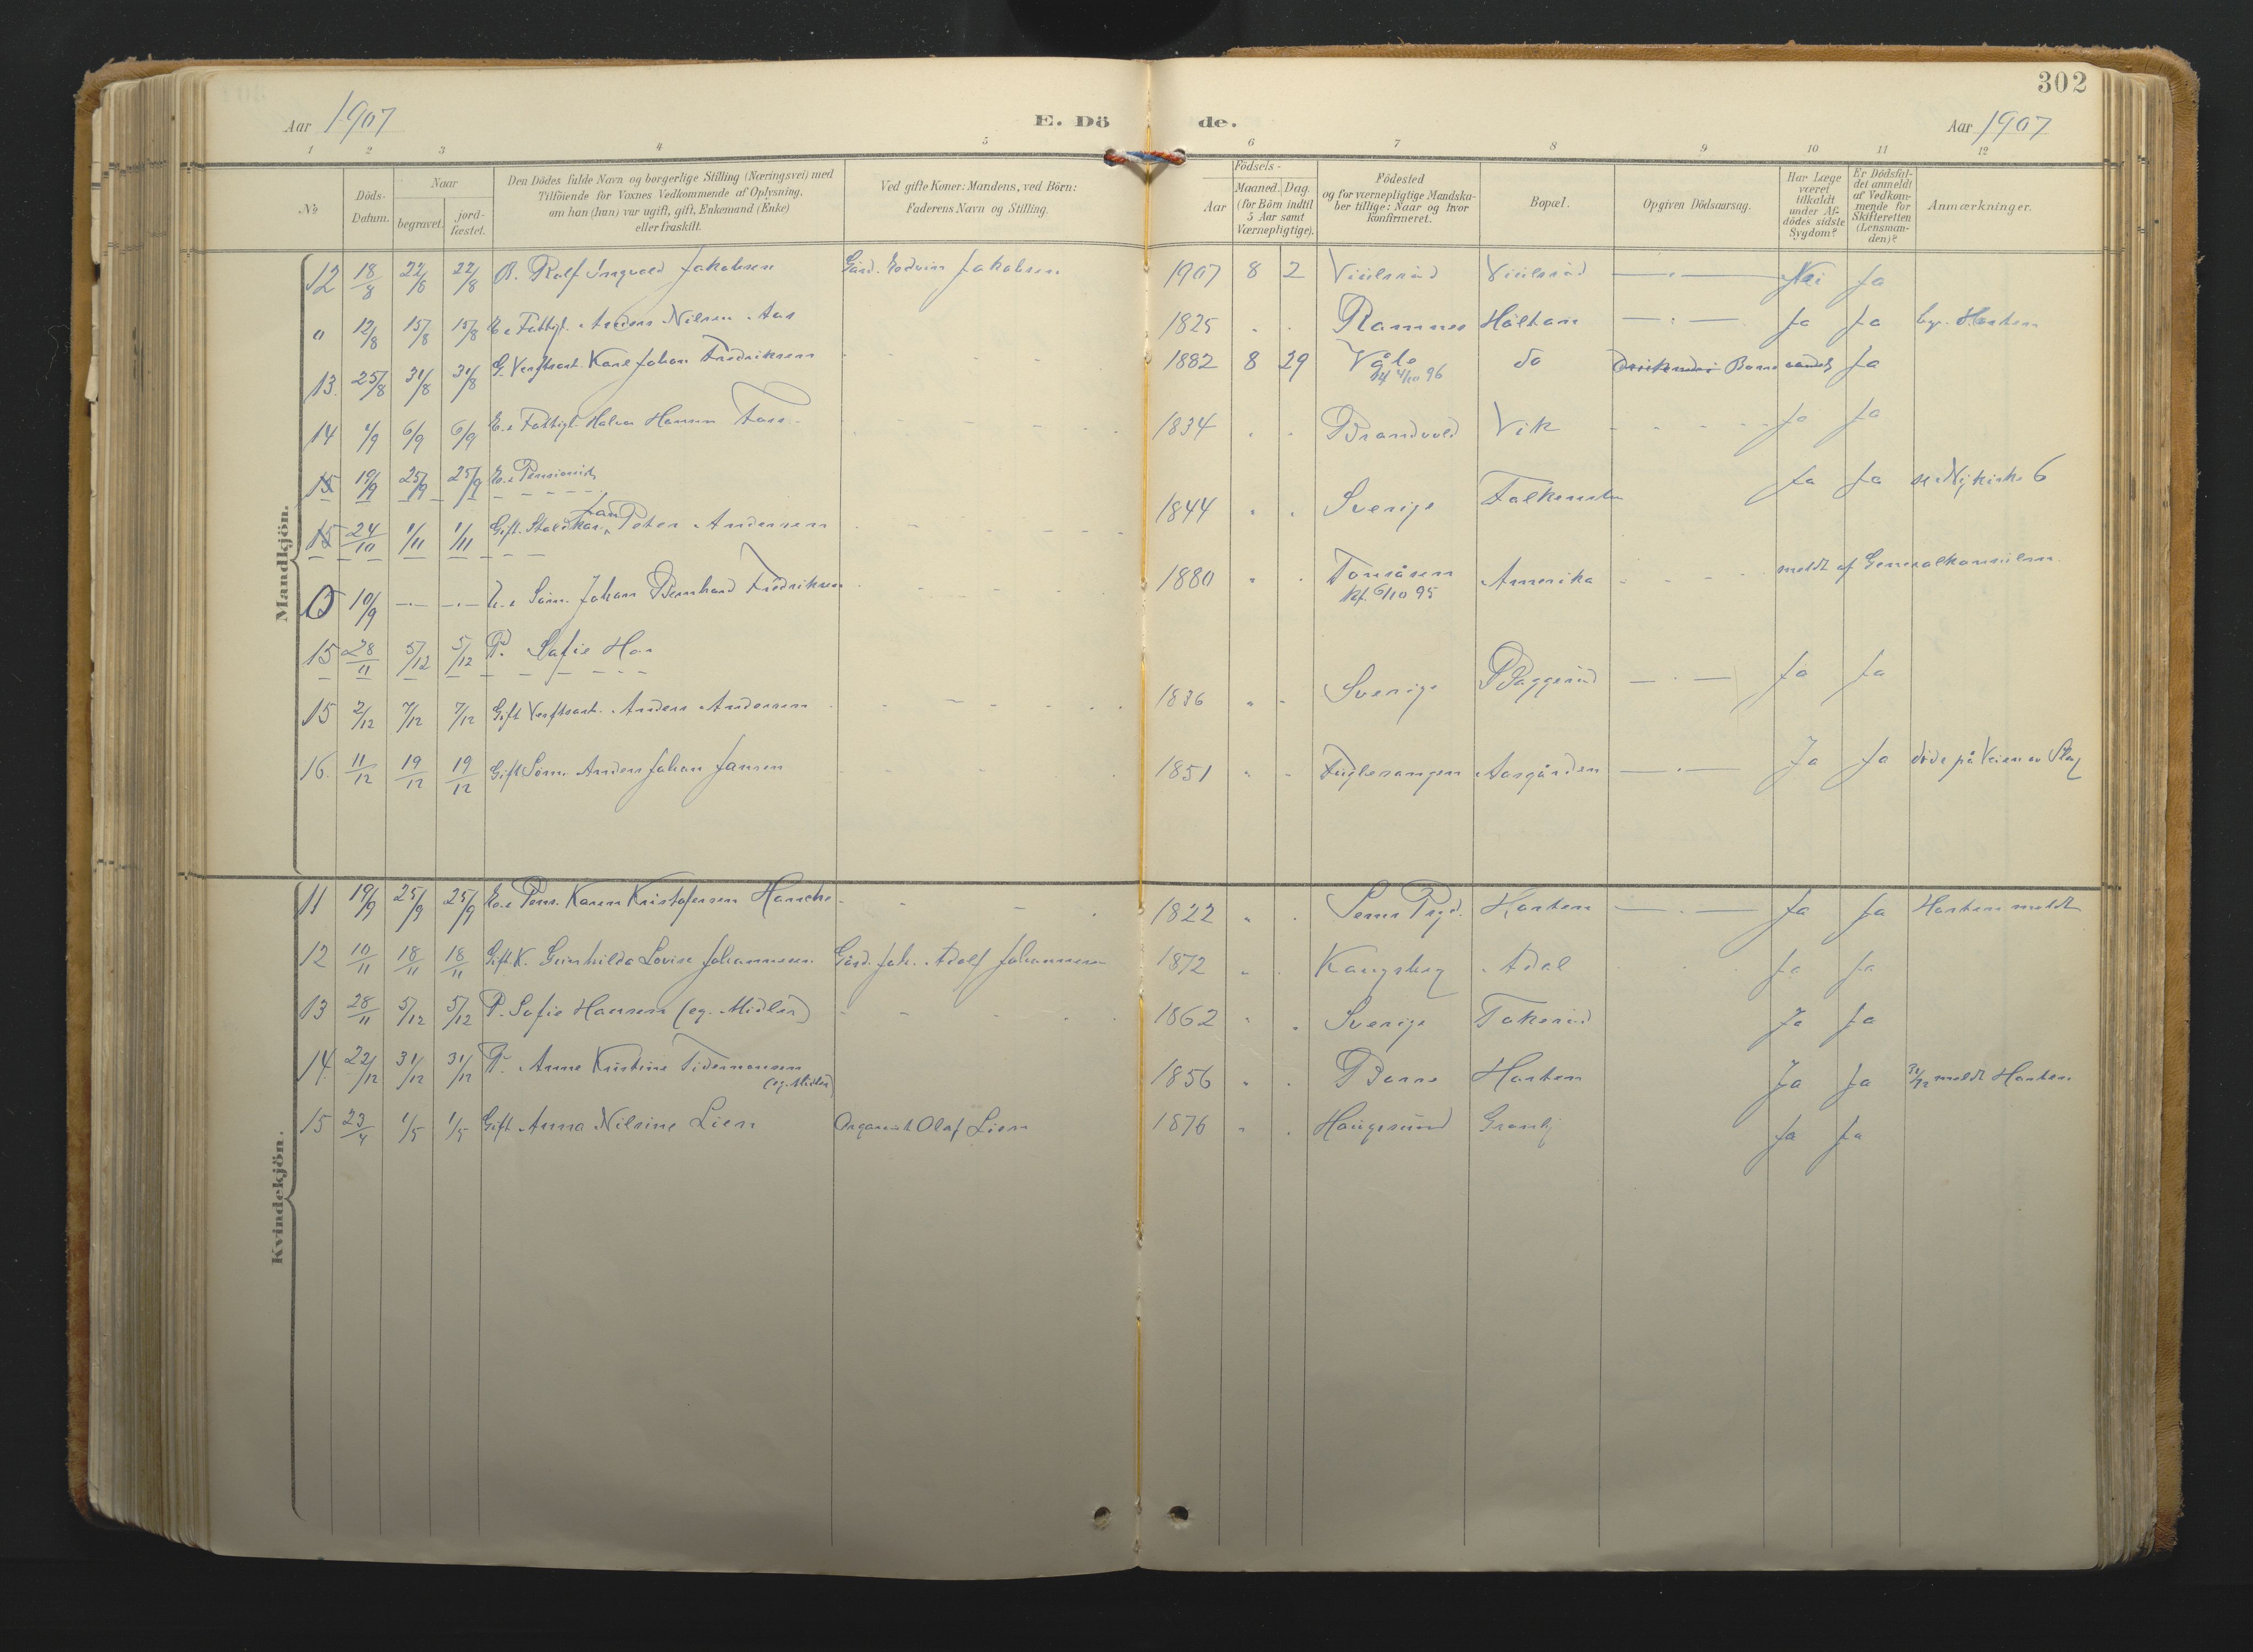 302
Aar 1907
E. Dö de.
Aar 1907
1 2 3 4 5 6 7 8 9 10 11 12
No
Döds-Datum.
Naar
begravet.
jord-fæstet.
Den Dödes fulde Navn og borgerlige Stilling (Næringsvei) med
Tilföiende for Voxnes Vedkommende af Oplysning,
om han (hun) var ugift, gift, Enkemand (Enke)
eller fraskilt.
Ved gifte Koner: Mandens, ved Börn:
Faderens Navn og Stilling.
Födsels-
Aar
Maaned. Dag.
(for Börn indtil
5 Aar samt
Værnepligtige).
Födested
og for værnepligtige Mandska-
ber tillige: Naar og hvor
Konfirmeret.
Bopæl.
Opgiven Dödsaarsag.
Har Læge
været
tilkaldt
under Af-
dödes sidste
Sygdom?
Er Dödsfal-
det anmeldt
af Vedkom-
mende for
Skifteretten
(Lensman-
den)?
Anmærkninger.
Mandkjön.
12 18/8 22/8 22/8 B. Rolf Ingvald Jakobsen Gård. Edvin Jakobsen 1907 8 2 Viulsrud Viulsrud Nei Ja
" 12/8 15/8 15/8 E. Fattigl. Anders Nilsen Aas 1825 Ramnes Håltan Ja Ja bg. Horten
13. 25/8 31/8 31/8 G. Verftsarb. Karl Johan Fredriksen 1882 8 29 Våle 4/10 96 do Borre vandet Ja
14 1/9 6/9 6/9 E. Fattigl. Halvor Hansen Foss 1834 Brandvold Vik Ja Ja
15 19/9 25/9 25/9 E. Pensionist
15 24/10 1/11 1/11 Gift. Staldkar. Jan Peter Andersen 1844 Sverige Falkensten Ja Ja se Nykirke 6
0 10/9 U. Söm. Johan Bernhard Fredriksen 1880 Tonsåsen Kf. 6/10 95 Amerika meldt af Generalkonsulen
15 28/11 5/12 5/12 P. Sofie Han
15 2/12 7/12 7/12 Gift Verftsarb. Anders Andersen 1836 Sverige Baggerud Ja Ja
16. 11/12 19/12 19/12 Gift Söm. Anders Johan Jansen 1851 Fuglevangen Aasgården Ja Ja döde på Veien av Slag
Kvindekjön.
11 19/9 25/9 25/9 E. Pens. Karen Kristofersen Hanche 1822 Sems Pgd. Horten Ja Ja Horten meldt
12 10/11 18/11 18/11 Gift K. Gunhilda Lovise Johannesen Gård. Joh. Adolf Johannesen 1872 Kongsberg Adal Ja Ja
13 28/11 5/12 5/12 P. Sofie Hansen (eg. Midler) 1862 Sverige Tokerud Ja Ja
14. 22/12 31/12 31/12 P. Anne Kristine Tidemansen (eg. Midler) 1856 Borre Horten Ja Ja 31/12 meldt Horten
15 23/4 1/5 1/5 Gift Anna Nilsine Lien Organist Olaf Lien 1876 Haugesund Granly Ja Ja